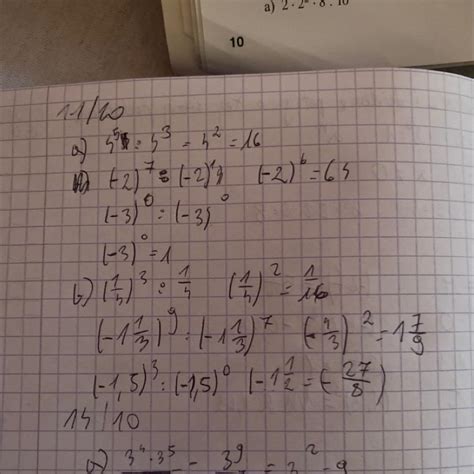 a) 2 · 2⁴ · 8 : 10
10
11/10
a) 4⁵ : 4³ = 4² = 16
(-2)⁷ : (-2)¹ (-2)⁶ = 64
(-3)⁰ : (-3)⁰
(-3)⁰ = 1
b) (1/4)³ : 1/4 (1/4)² = 1/16
(-1 1/3)⁹ : (-1 1/3)⁷ (-4/3)² = 1 7/9
(-1,5)³ : (-1,5)⁰ (-1 1/2 = (-27/8)
14/10
a) 3⁴·3⁵ = 3⁹ = 3² = 9